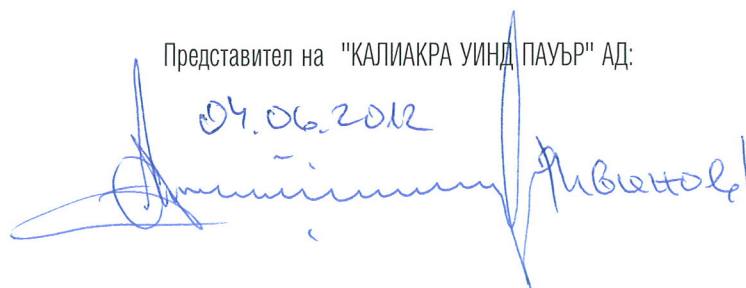 Представител на "КАЛИАКРА УИНД ПАУЪР" АД:
04.06.2012